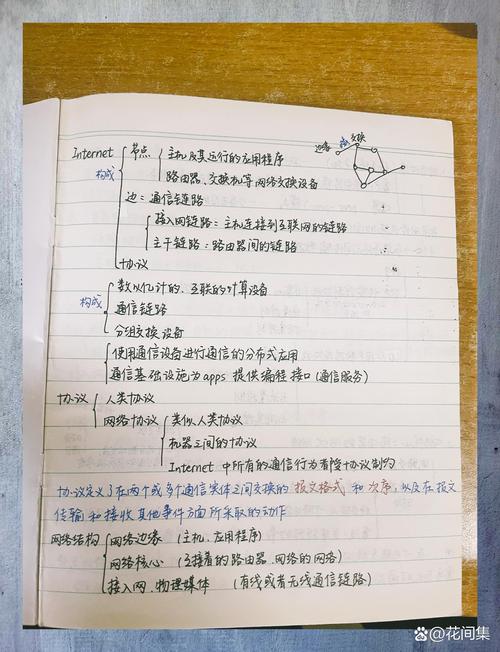 边缘 交换
Internet
构成
节点 主机及其运行的应用程序
路由器、交换机等网络交换设备
边:通信链路
接入网链路:主机连接到互联网的链路
主干链路:路由器间的链路
协议
构成
数以亿计的、互联的计算设备
通信链路
分组交换设备
使用通信设备进行通信的分布式应用
通信基础设施为apps 提供编程接口(通信服务)
协议 人类协议
网络协议 类似人类协议
机器之间的协议
Internet 中所有的通信行为都受协议制约
协议定义了在两个或多个通信实体之间交换的报文格式和次序,以及在报文
传输和接收其他事件方面所采取的动作
网络结构 网络边缘 (主机、应用程序)
网络核心 (互接着的路由器、网络的网络)
接入网、物理媒体 (有线或者无线通信链路)
花间集